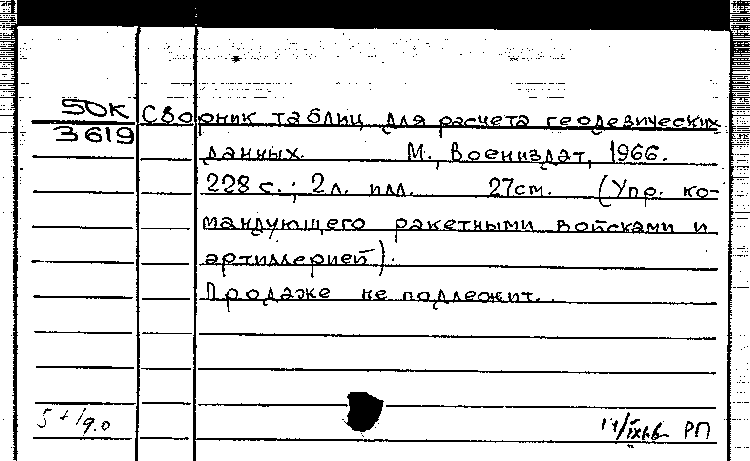 50К Сборник таблиц для расчета геодезических
3619 данных. М., Воениздат, 1966.
228 с.; 2 л. илл. 27см. (Упр. ко-
мандующего ракетными войсками и
артиллерией).
Продаже не подлежит.
РП